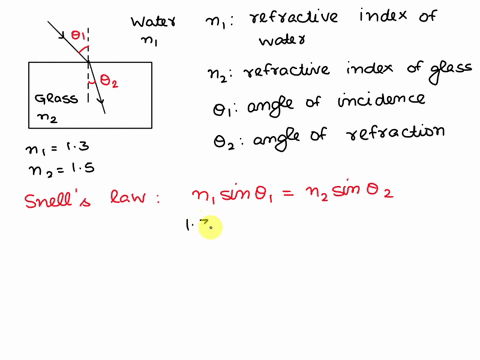 Water
n1
θ1
θ2
Glass
n2
n1 = 1.3
n2 = 1.5
n1: refractive index of
water
n2: refractive index of glass
θ1: angle of incidence
θ2: angle of refraction
Snell's law: n1 sin θ1 = n2 sin θ2
1.